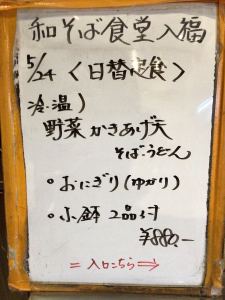 和そば食堂入福
5/24 〈日替定食〉
冷・温)
野菜かきあげ天
そば・うどん
。おにぎり(ゆかり)
。小鉢2品付
¥880.-
=入口こちら⇒